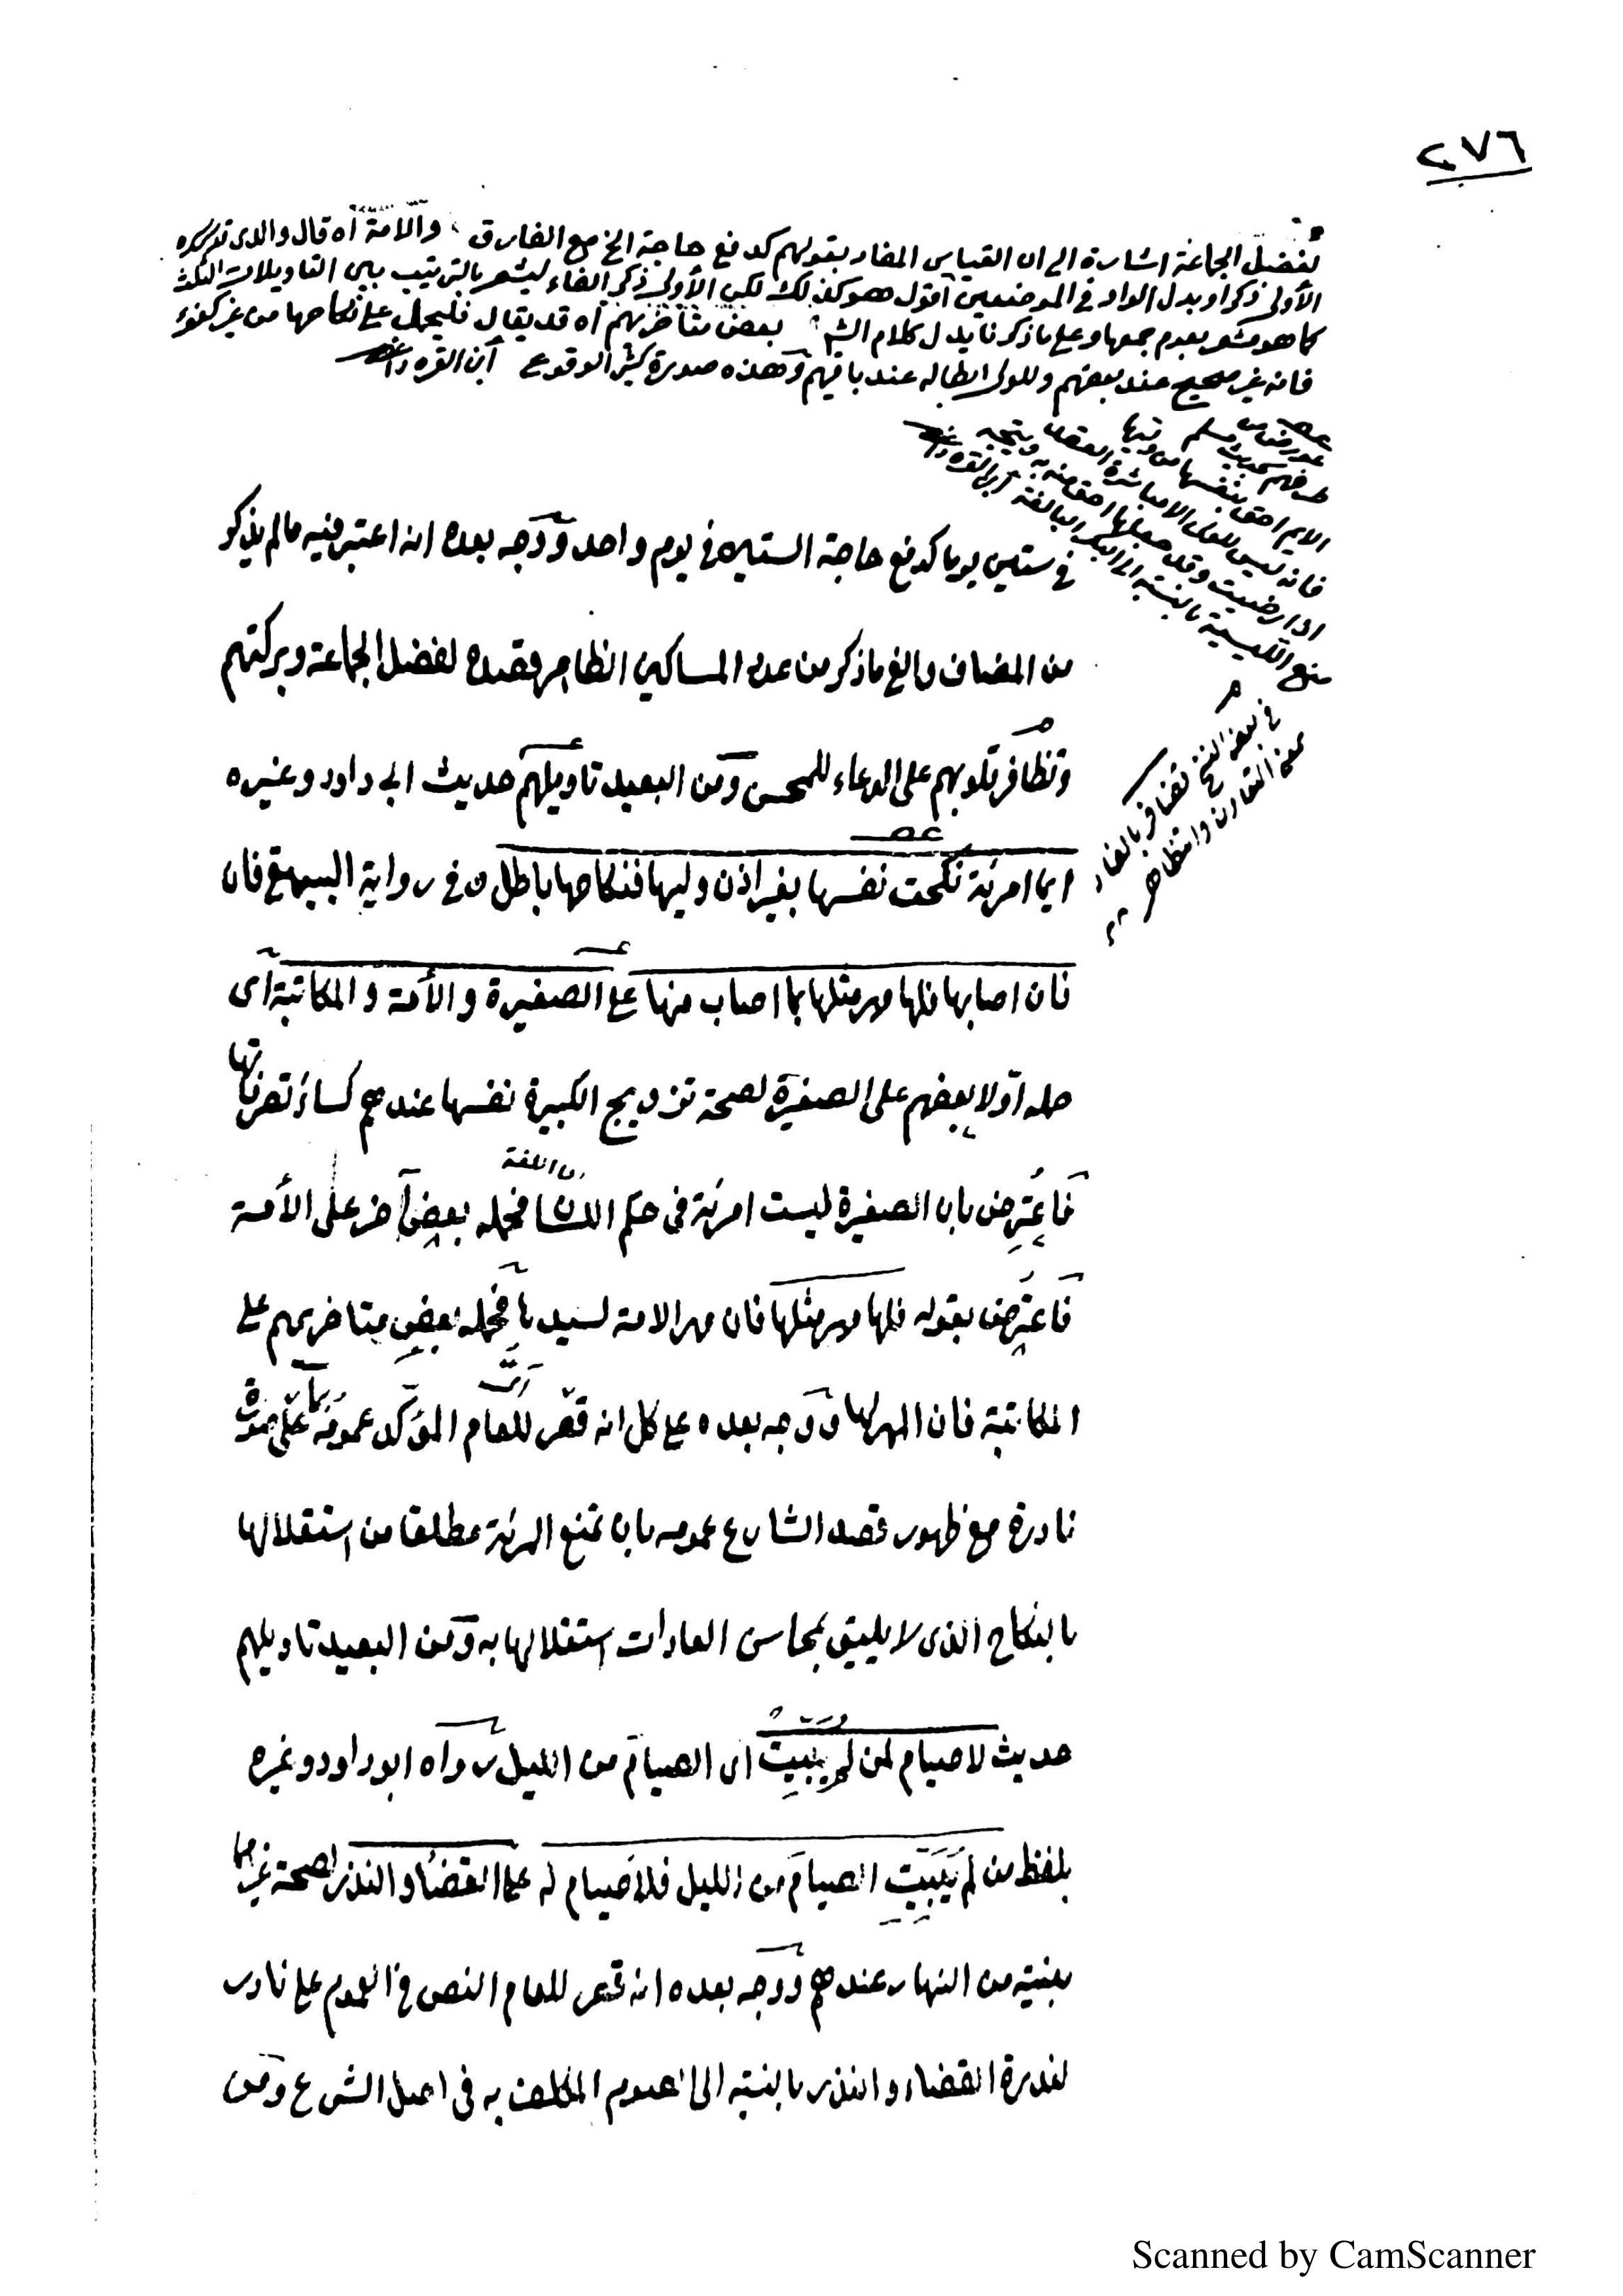 ٢٧٦
لفضل الجماعة اشارة الى ان القياس المفاد بقولهم كدفع حاجة الخ مع الفارق والامة آه قال والدى
الأولى ذكر او بدل الواو فى الموضعين اقول هو كذلك لكن الأولى ذكر الفاء ليشعر بالترتيب بين التاويلات الثلث
كما هو مشعر بعدم جمعها وعلى ما ذكرنا يدل كلام الش بعض متأخريهم آه قد يقال فليحمل على نكاحها من غير كفوء
فانه غير صحيح عند بعضهم وللولى ابطاله عند باقيهم وهذه صورة كثير الوقوع ابن القره داغى
الايم احق بنفسها من وليها
فى بعض النسخ تضافر بالضاد
فى ستين يوما كدفع حاجة الستين فى يوم واحد ووجه بعده انه اعتبر فيه مالم يذكر
من المضاف والغى ما ذكر من عدد المساكين الظاهر قصده لفضل الجماعة وبركتهم
وتظافر قلوبهم على الدعاء للمحسن ومن البعيد تاويلهم حديث ابى داود وغيره
ايما امرئة نكحت نفسها بغير اذن وليها فنكاحها باطل وفى رواية البيهقى فان
فان اصابها فلها مهر مثلها بما اصاب منها على الصغيرة والأمة والمكاتبة اى
حمله اولا بعضهم على الصغيرة لصحة تزويج الكبيرة نفسها عندهم كسائر تصرفاتها
فاعترض بان الصغيرة ليست امرئة فى حكم اللسان فحمله بعض آخر على الأمة
فاعترض بقوله فلها مهر مثلها فان مهر الامة لسيدها فحمله بعض متاخريهم على
المكاتبة فان المهر لها ووجه بعده على كل انه قصر للعام المؤكد عمومه بما على صورة
نادرة مع ظهور قصد الشارع عمومه بان تمنع المرئة مطلقا من استقلالها
بالنكاح الذى لا يليق بمحاسن العادات استقلالها به ومن البعيد تاويلهم
حديث لا صيام لمن لم يبيت اى الصيام من الليل رواه ابو داود وغيره
بلفظ من لم يبيت الصيام من الليل فلا صيام له على القضاء والنذر لصحة غيرهما
بنية من النهار عندهم ووجه بعده انه قصر للعام النص فى العموم على نادر
لندرة القضاء والنذر بالنسبة الى الصوم المكلف به فى اصل الشرع ومن
Scanned by CamScanner